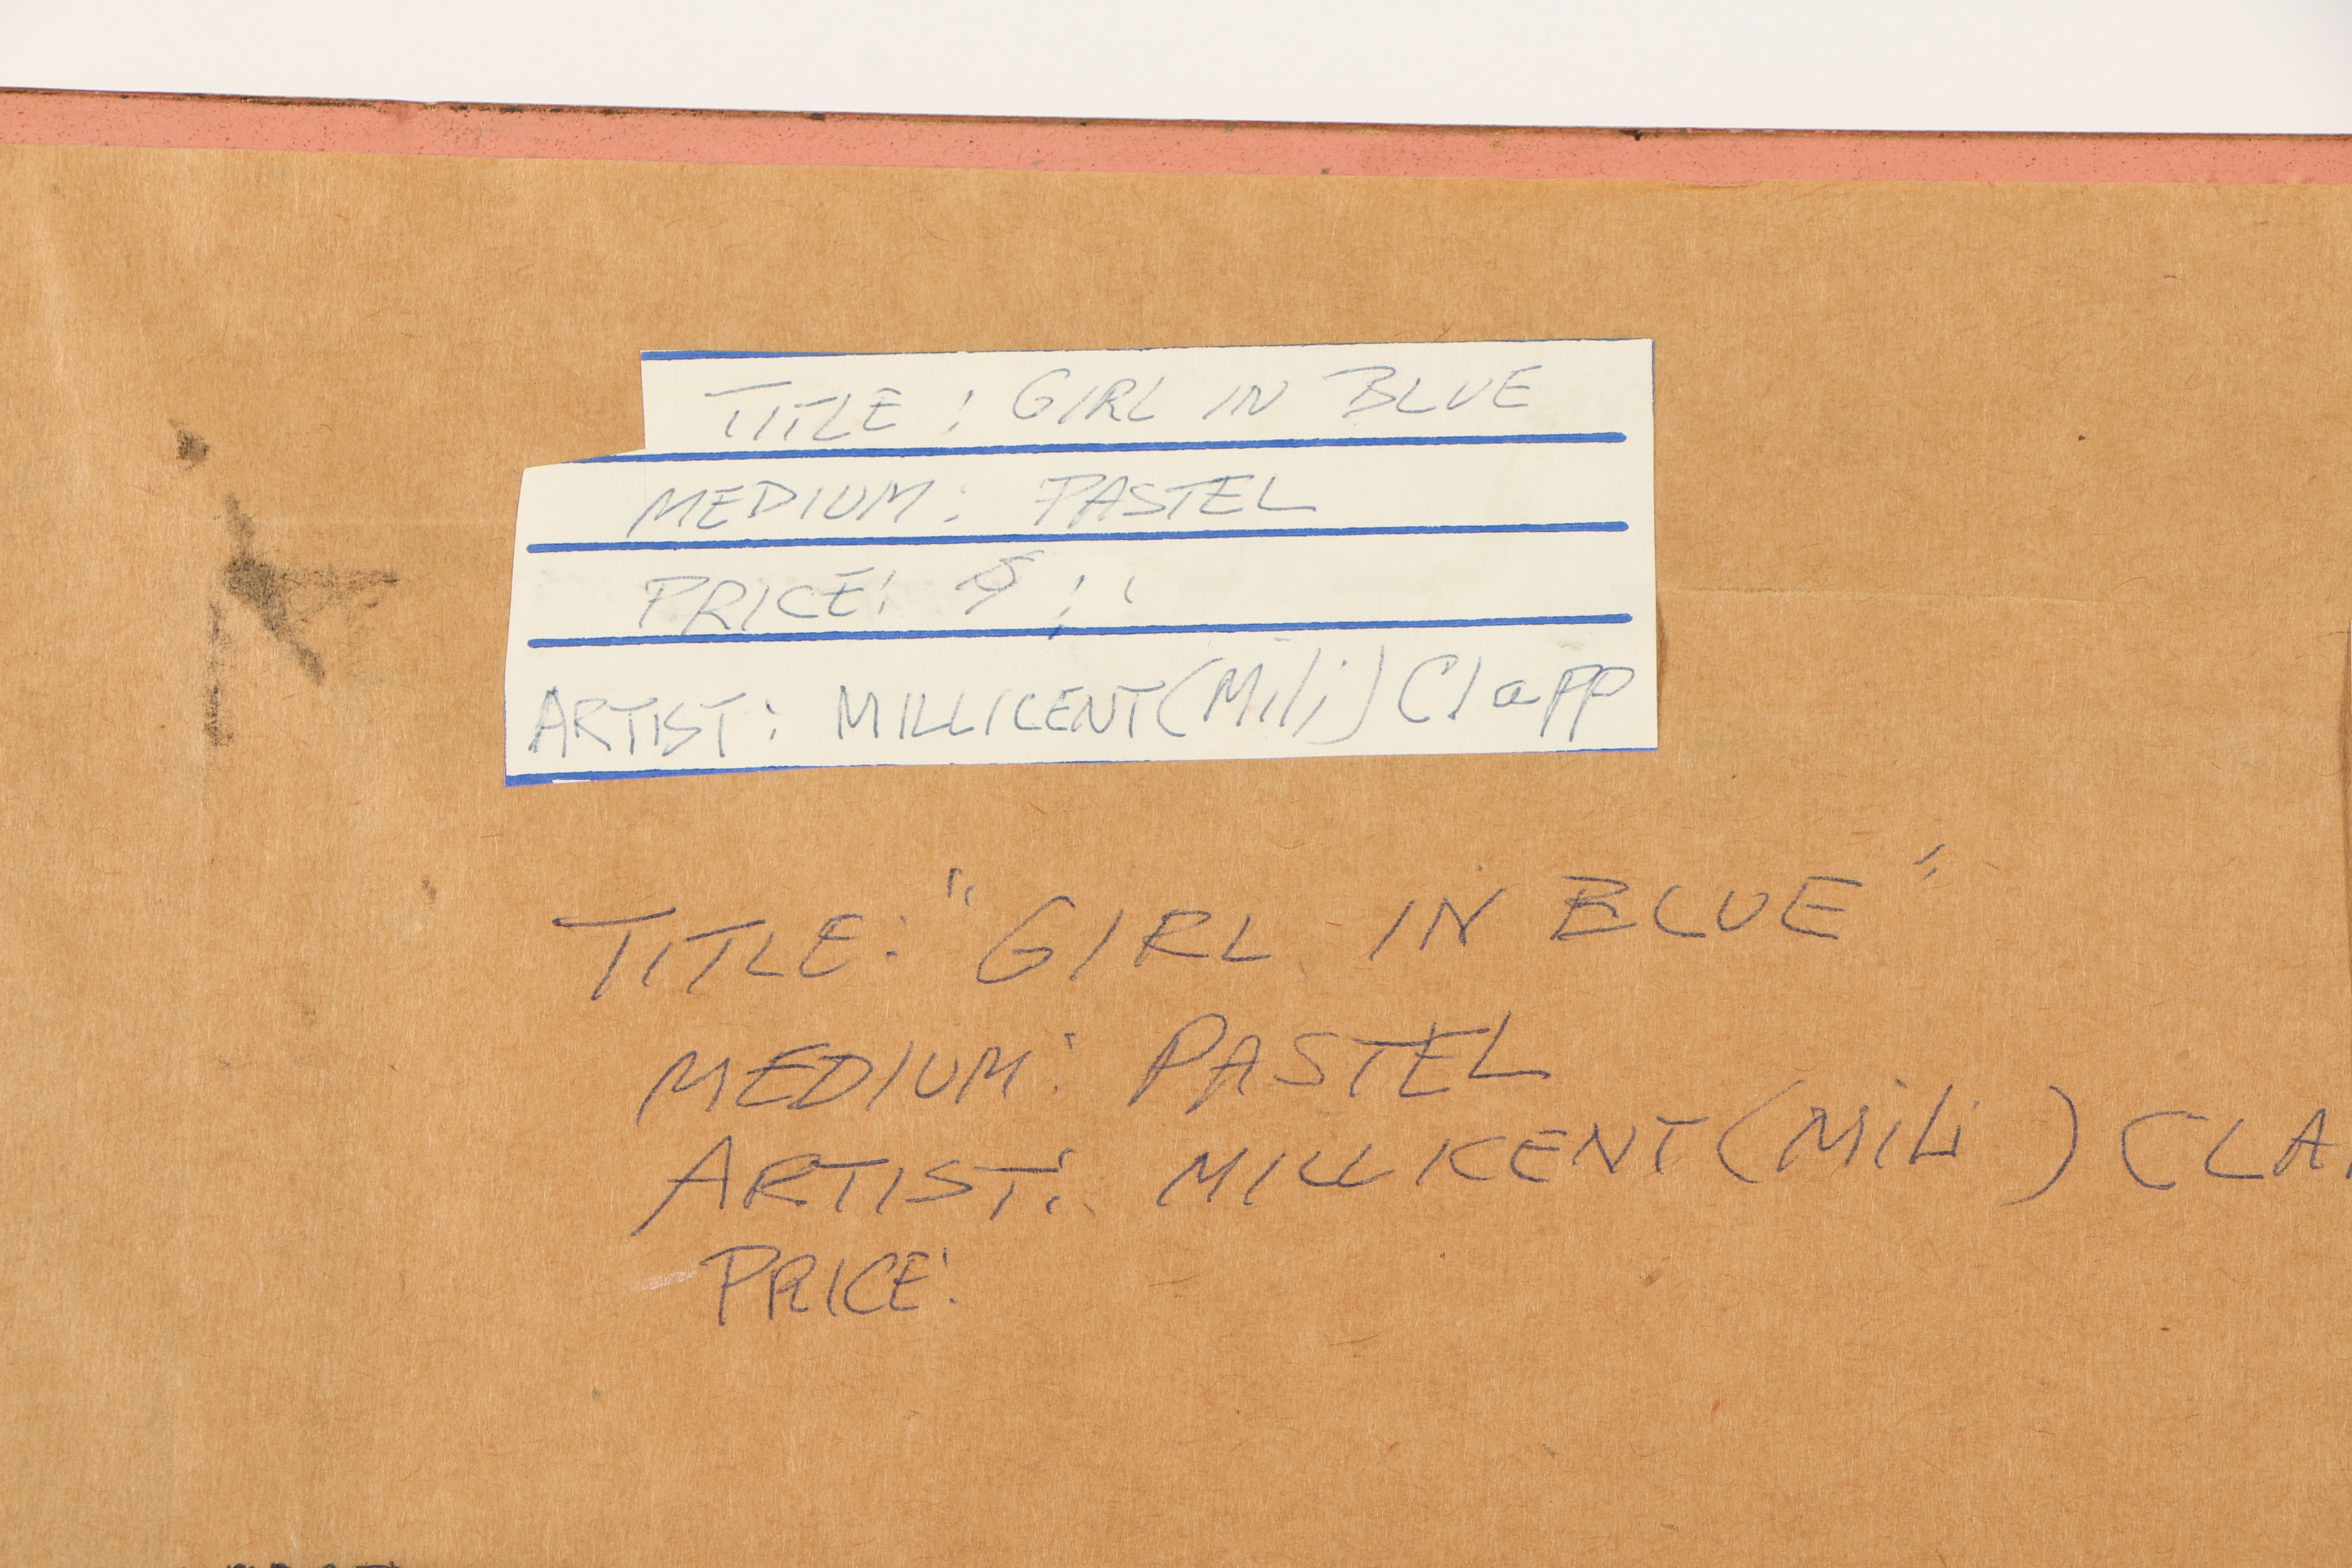 TITLE: GIRL IN BLUE
MEDIUM: PASTEL
PRICE: $
ARTIST: MILLICENT (Mili) Clapp
TITLE: "GIRL IN BLUE"
MEDIUM: PASTEL
ARTIST: MILLICENT (Mili) CLA
PRICE: